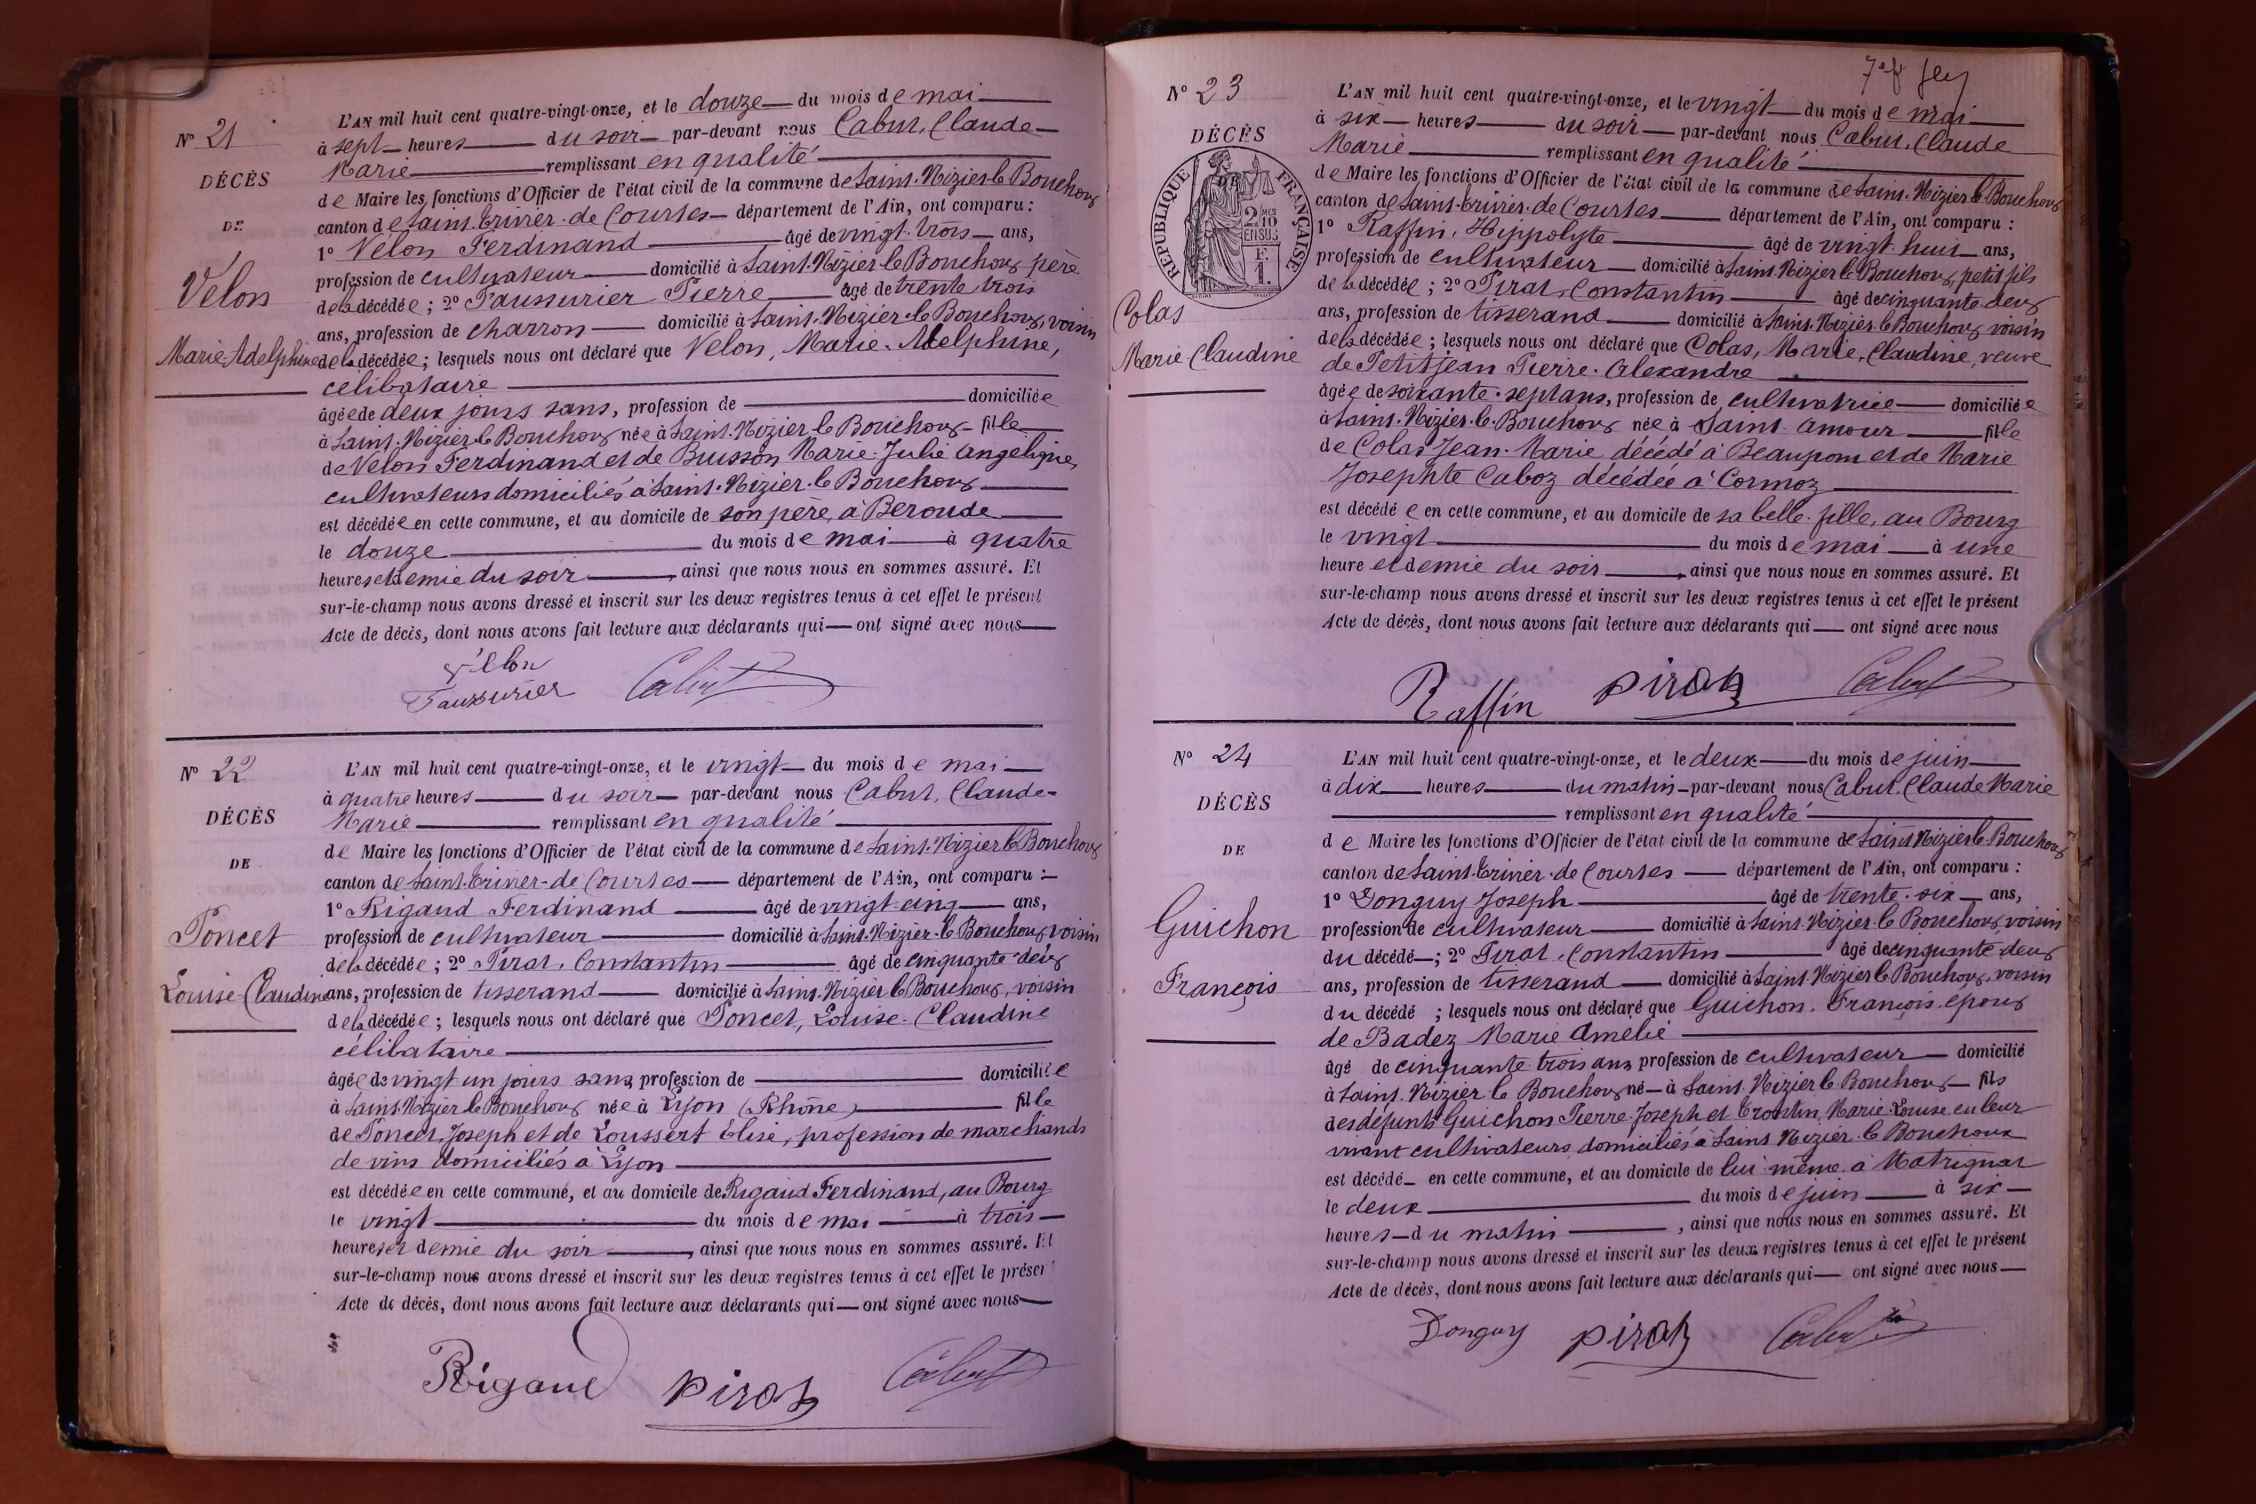 L'AN mil huit cent quatre-vingt-onze, et le douze du mois de mai
N° 21
à sept heures du soir par-devant nous Cabut, Claude
Marie remplissant en qualité
DÉCÈS
de Maire les fonctions d'Officier de l'état civil de la commune de Saint-Nizier-le-Bouchoux
DE
canton de Saint-Trivier-de-Courtes département de l'Ain, ont comparu :
1° Vélon Ferdinand âgé de vingt-trois ans,
Vélon
profession de cultivateur domicilié à Saint-Nizier-le-Bouchoux père
de la décédée ; 2° Faussurier Pierre âgé de trente trois
ans, profession de charron domicilié à Saint-Nizier-le-Bouchoux, voisin
Marie-Adelphine
de la décédée ; lesquels nous ont déclaré que Velon, Marie-Adelphine,
célibataire
âgée de deux jours sans, profession de domiciliée
à Saint-Nizier-le-Bouchoux née à Saint-Nizier-le-Bouchoux fille
de Velon Ferdinand et de Buisson Marie-Julie Angélique,
cultivateurs domiciliés à Saint-Nizier-le-Bouchoux
est décédée en cette commune, et au domicile de son père, à Beroude
le douze du mois de mai à quatre
heures et demie du soir, ainsi que nous nous en sommes assuré. Et
sur-le-champ nous avons dressé et inscrit sur les deux registres tenus à cet effet le présent
Acte de décès, dont nous avons fait lecture aux déclarants qui ont signé avec nous
Vélon
Faussurier Cabut
N° 22
L'AN mil huit cent quatre-vingt-onze, et le vingt du mois de mai
à quatre heures du soir par-devant nous Cabut, Claude-
DÉCÈS
Marie remplissant en qualité
de Maire les fonctions d'Officier de l'état civil de la commune de Saint-Nizier-le-Bouchoux
DE
canton de Saint-Trivier-de-Courtes département de l'Ain, ont comparu :
1° Rigaud Ferdinand âgé de vingt-cinq ans,
Poncet
profession de cultivateur domicilié à Saint-Nizier-le-Bouchoux, voisin
de la décédée ; 2° Pirat, Constantin âgé de cinquante-deux
Louise-Claudine
ans, profession de tisserand domicilié à Saint-Nizier-le-Bouchoux, voisin
de la décédée ; lesquels nous ont déclaré que Poncet, Louise-Claudine
célibataire
âgée de vingt un jours sans profession de domiciliée
à Saint-Nizier-le-Bouchoux née à Lyon (Rhône) fille
de Poncet Joseph et de Loussert Elise, profession de marchands
de vins domiciliés à Lyon
est décédée en cette commune, et au domicile de Rigaud Ferdinand, au Bourg
le vingt du mois de mai à trois
heures et demie du soir, ainsi que nous nous en sommes assuré. Et
sur-le-champ nous avons dressé et inscrit sur les deux registres tenus à cet effet le présent
Acte de décès, dont nous avons fait lecture aux déclarants qui ont signé avec nous
Rigaud Pirat Cabut
N° 23
L'AN mil huit cent quatre-vingt-onze, et le vingt du mois de mai
à six heures du soir par-devant nous Cabut, Claude
DÉCÈS
Marie remplissant en qualité
RÉPUBLIQUE FRANÇAISE
de Maire les fonctions d'Officier de l'état civil de la commune de Saint-Nizier-le-Bouchoux
canton de Saint-Trivier-de-Courtes département de l'Ain, ont comparu :
1° Raffin, Hippolyte âgé de vingt-huit ans,
profession de cultivateur domicilié à Saint-Nizier-le-Bouchoux, petit fils
de la décédée ; 2° Pirat, Constantin âgé de cinquante-deux
Colas
ans, profession de tisserand domicilié à Saint-Nizier-le-Bouchoux voisin
Marie Claudine
de la décédée ; lesquels nous ont déclaré que Colas, Marie, Claudine, veuve
de Petitjean Pierre-Alexandre
âgée de soixante-sept ans, profession de cultivatrice domiciliée
à Saint-Nizier-le-Bouchoux née à Saint-Amour fille
de Colas Jean-Marie décédé à Beaupont et de Marie
Josephte Caboz décédée à Cormoz
est décédée en cette commune, et au domicile de sa belle-fille, au Bourg
le vingt du mois de mai à une
heure et demie du soir, ainsi que nous nous en sommes assuré. Et
sur-le-champ nous avons dressé et inscrit sur les deux registres tenus à cet effet le présent
Acte de décès, dont nous avons fait lecture aux déclarants qui ont signé avec nous
Raffin Pirat Cabut
N° 24
L'AN mil huit cent quatre-vingt-onze, et le deux du mois de juin
à dix heures du matin par-devant nous Cabut, Claude Marie
DÉCÈS
remplissant en qualité
de Maire les fonctions d'Officier de l'état civil de la commune de Saint-Nizier-le-Bouchoux
DE
canton de Saint-Trivier-de-Courtes département de l'Ain, ont comparu :
1° Donguy Joseph âgé de trente-six ans,
Guichon
profession de cultivateur domicilié à Saint-Nizier-le-Bouchoux, voisin
du décédé ; 2° Pirat, Constantin âgé de cinquante-deux
François
ans, profession de tisserand domicilié à Saint-Nizier-le-Bouchoux, voisin
du décédé ; lesquels nous ont déclaré que Guichon, François, époux
de Badez Marie Amélie
âgé de cinquante trois ans profession de cultivateur domicilié
à Saint-Nizier-le-Bouchoux né à Saint-Nizier-le-Bouchoux fils
des défunts Guichon Pierre-Joseph et Trontin, Marie-Louise en leur
vivant cultivateurs domiciliés à Saint-Nizier-le-Bouchoux
est décédé en cette commune, et au domicile de lui même à Matrignat
le deux du mois de juin à six
heures du matin, ainsi que nous nous en sommes assuré. Et
sur-le-champ nous avons dressé et inscrit sur les deux registres tenus à cet effet le présent
Acte de décès, dont nous avons fait lecture aux déclarants qui ont signé avec nous
Donguy Pirat Cabut